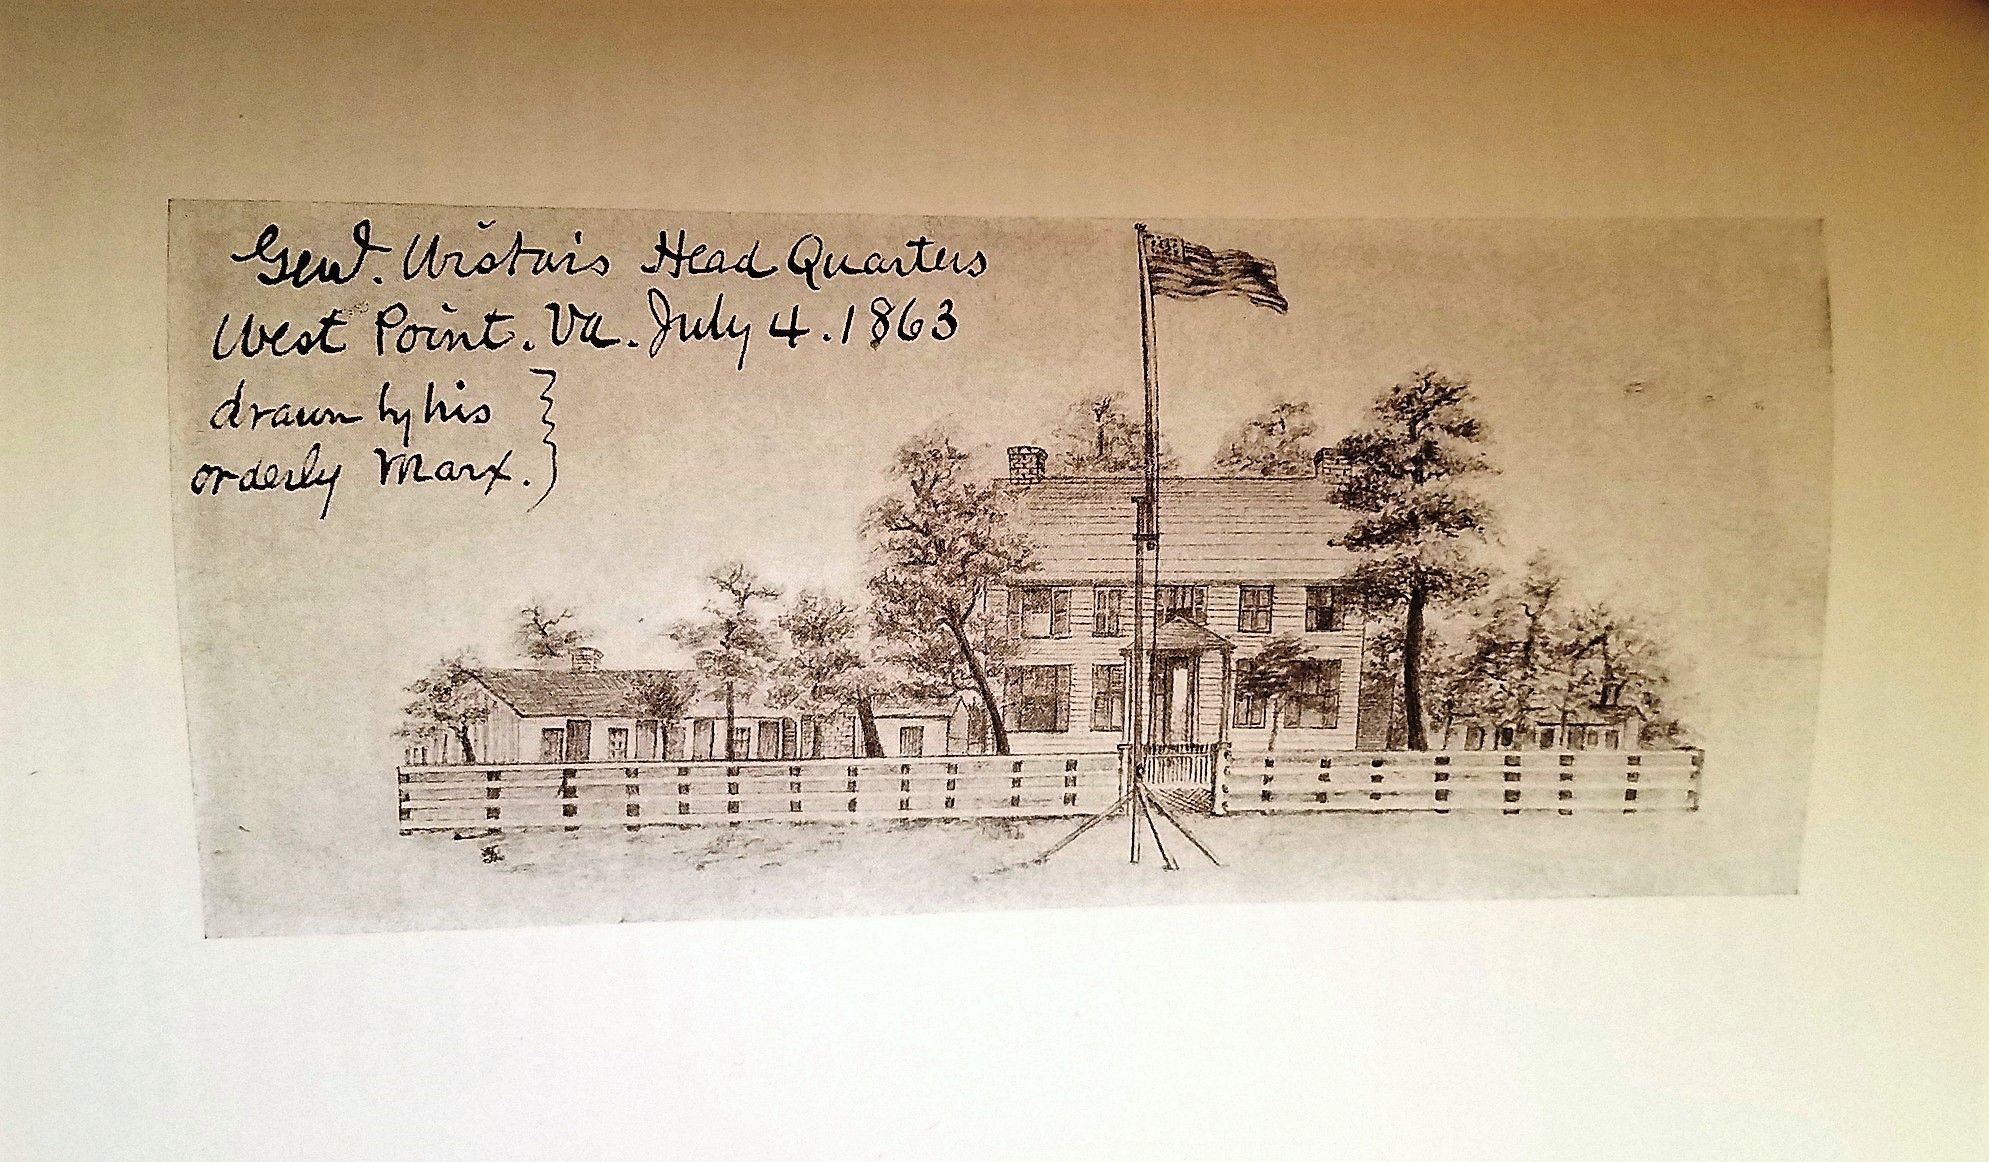 Genl. Wistars Head Quarters
West Point. Va. July 4. 1863
drawn by his
orderly Marx.